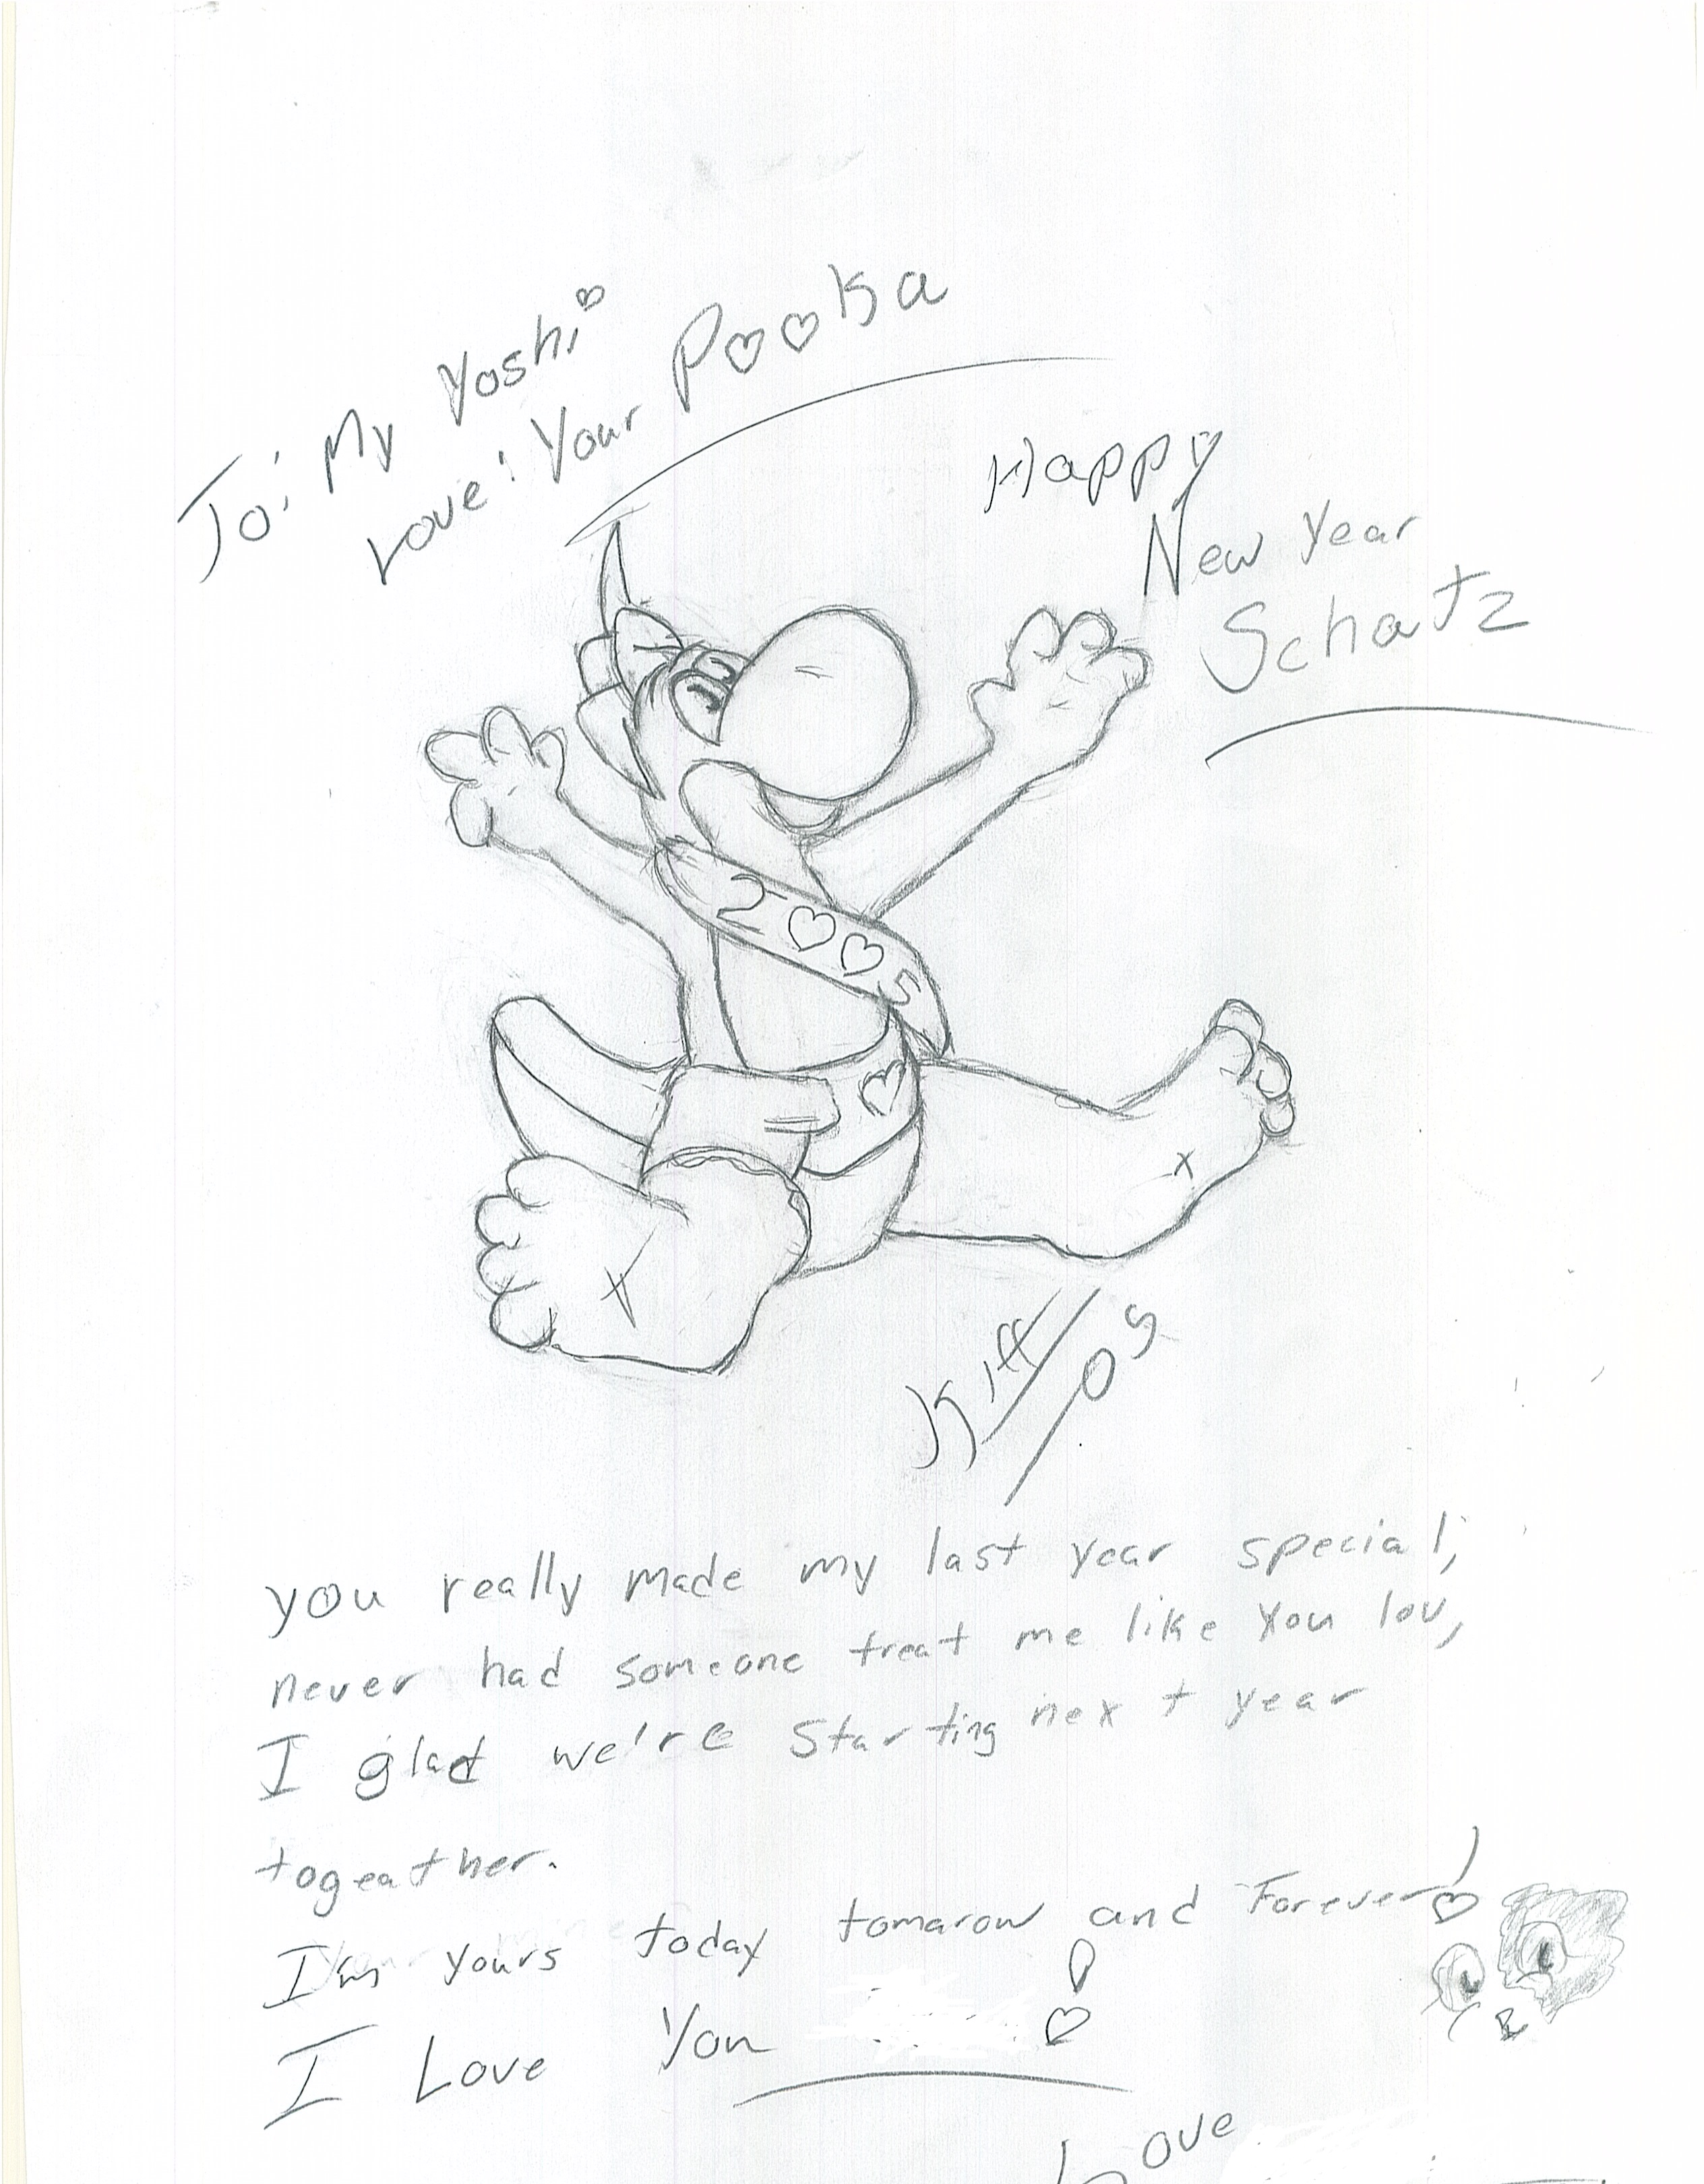 To: My Yoshi
Love: Your Pooka
Happy
New Year
Schatz
2005
Kitt
05
you really made my last year special,
never had someone treat me like you lov,
I glad we're starting next year
togeather.
I'm yours today tomarow and Forever!
I Love You !
Love